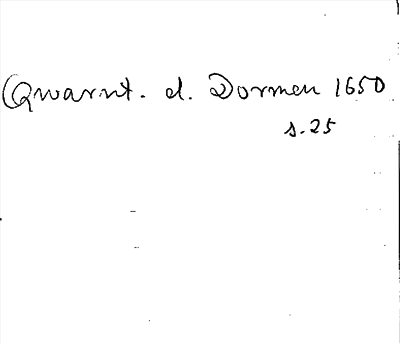 Qwarnt. d. Dormen 1650
s. 25